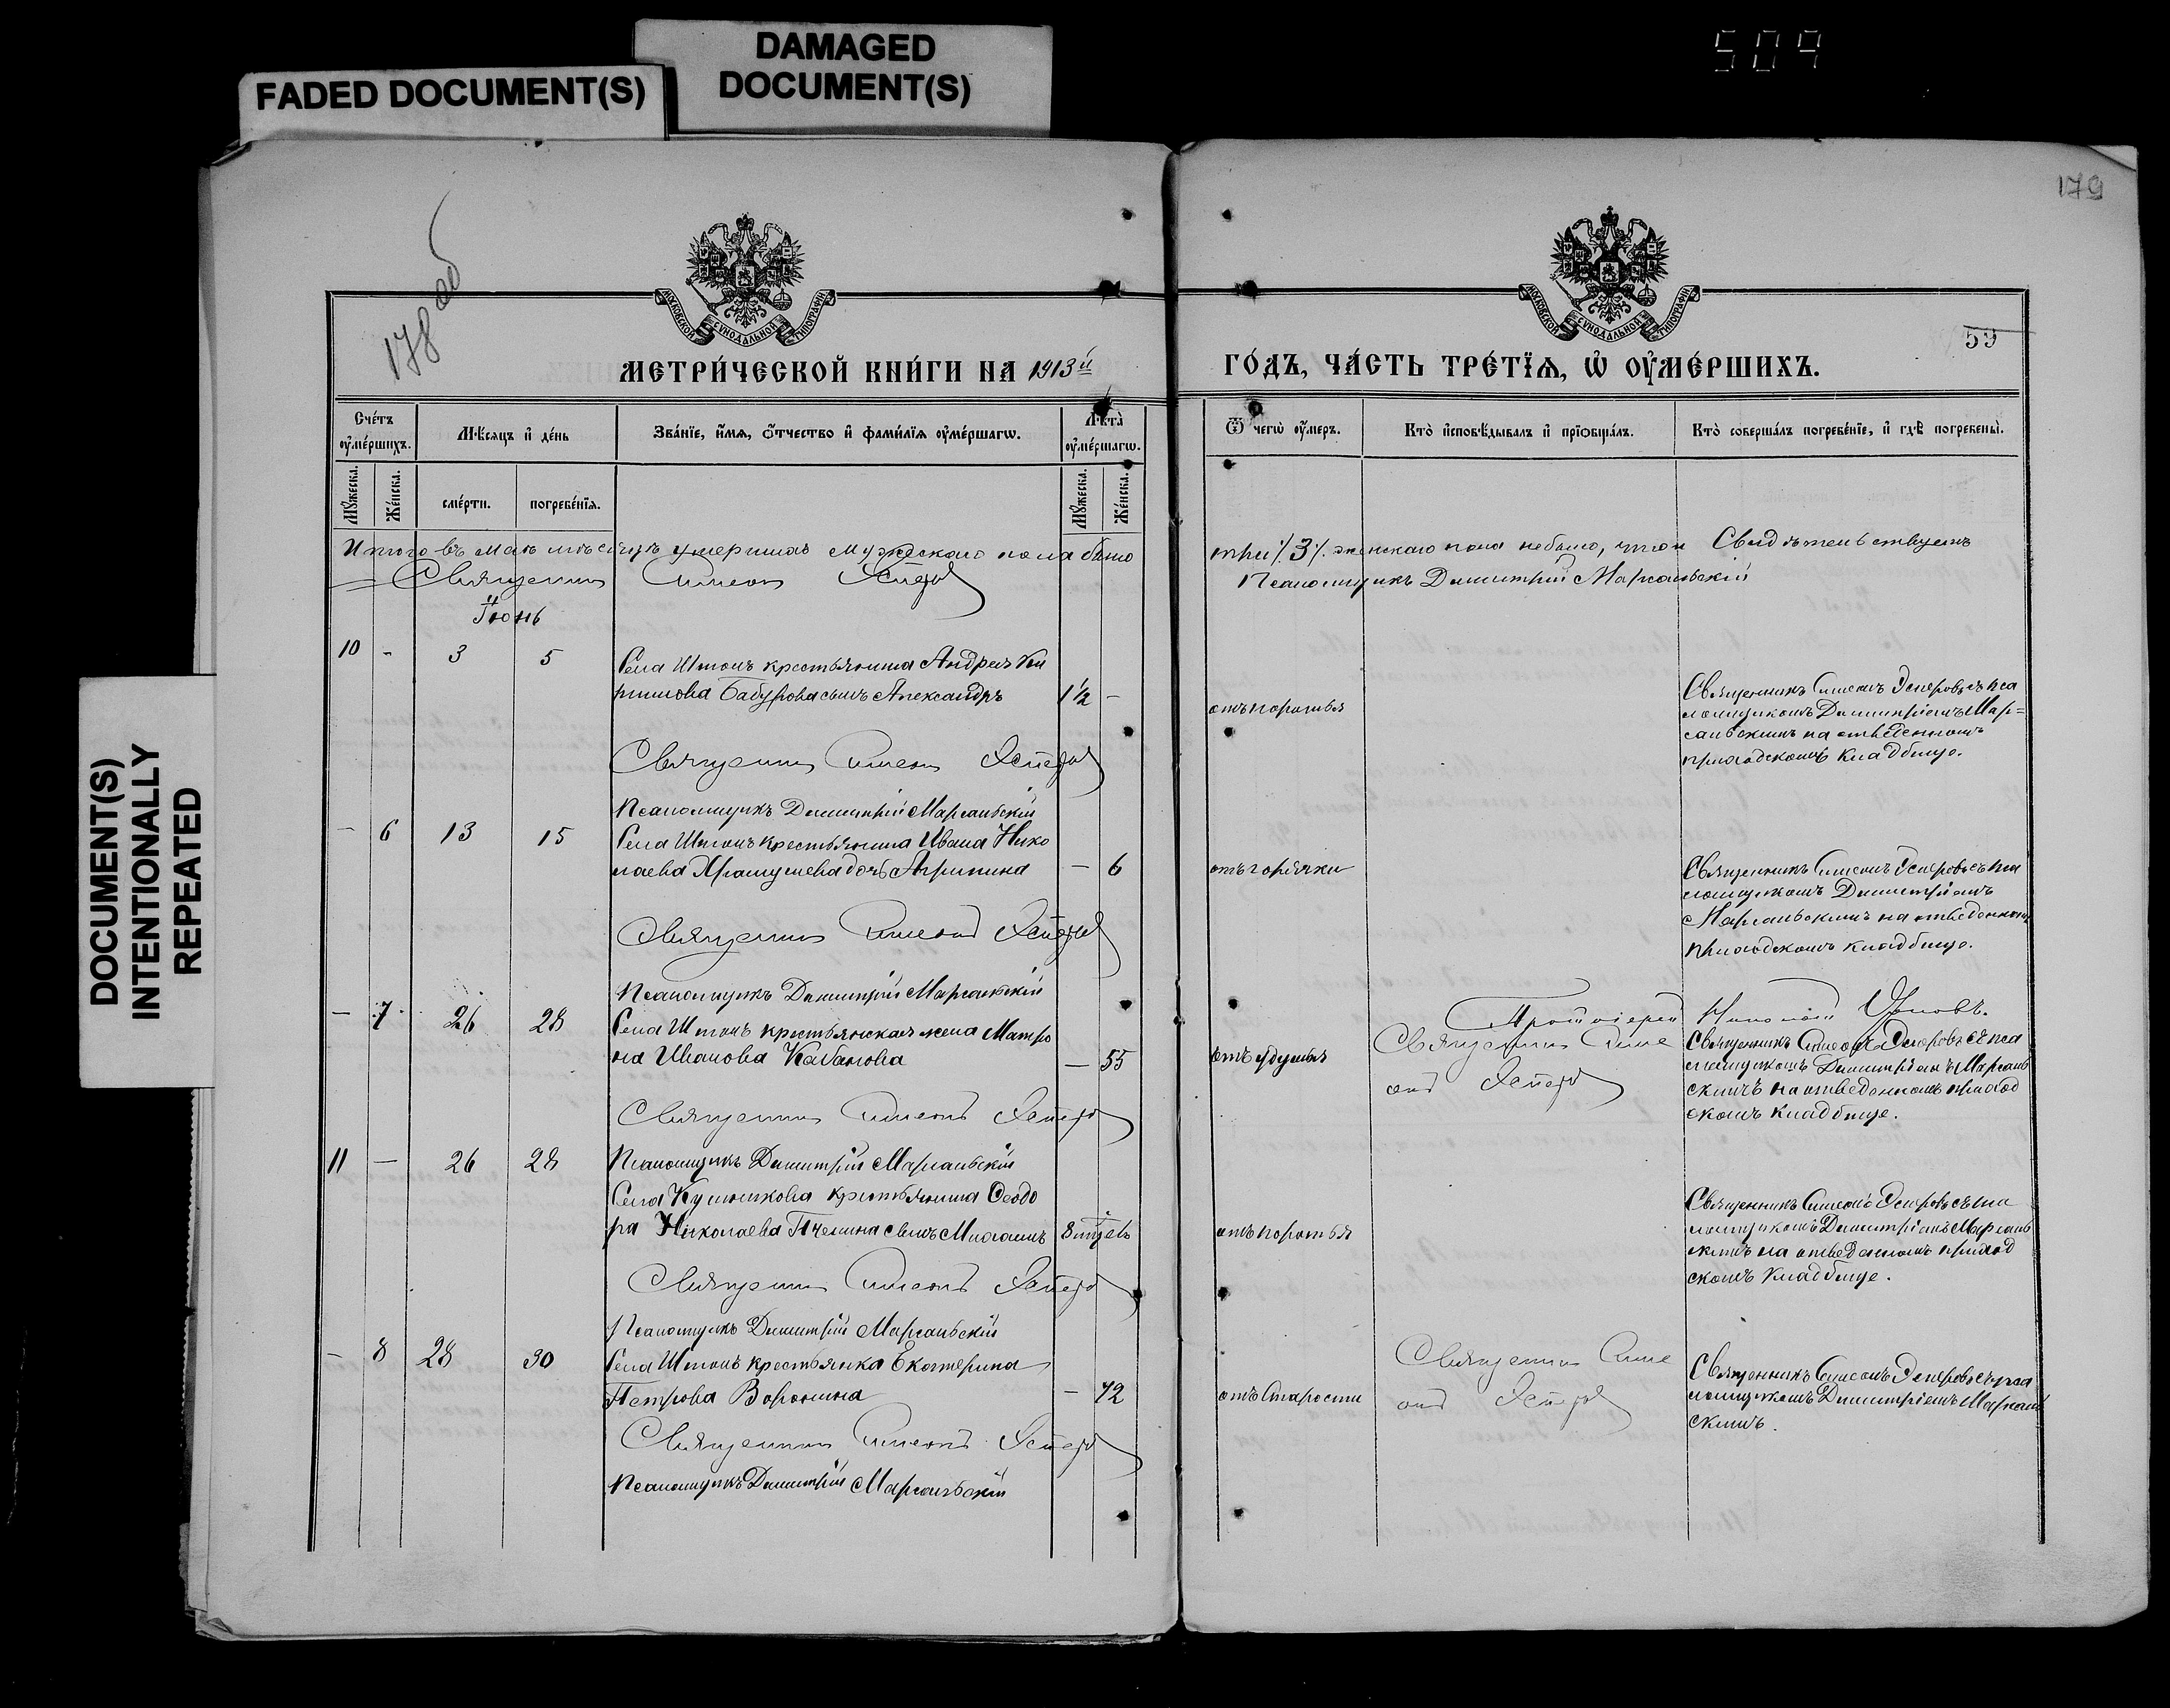 509
DAMAGED
DOCUMENT(S)
FADED DOCUMENT(S)
DOCUMENT(S)
INTENTIONALLY
REPEATED
178 об
179
59
МОСКОВСКОЙ СУНОДАЛЬНОЙ ТИПОГРАФІИ
МОСКОВСКОЙ СУНОДАЛЬНОЙ ТИПОГРАФІИ
МЕТРИ́ЧЕСКОЙ КНИ́ГИ НА 1913й
ГО́ДЪ, ЧА́СТЬ ТРЕ́ТЇѦ, Ѡ҆ ОУ҆МЕ́РШИХЪ.
Сче́тъ оу҆ме́ршихъ.
Мѣ́сяцъ и҆ де́нь
Зва́нїе, и҆́мѧ, ѻ҆́тчество и҆ фами́лїѧ оу҆ме́ршагѡ.
Лѣ́та оу҆ме́ршагѡ.
Ѿ чегѡ̀ оу҆́меръ.
Кто̀ и҆сповѣ́дывалъ и҆ прїѡбща́лъ.
Кто̀ соверша́лъ погребе́нїе, и҆ гдѣ̀ погребены̀.
Мꙋ́жеска.
Же́нска.
сме́рти.
погребе́нїѧ.
Мꙋ́жеска.
Же́нска.
Итого въ мае мѣсяцѣ умершихъ мужескаго пола было три /3/. женскаго пола небыло, что и Свидѣтельствуемъ
Священник Симеон Эсперов
Псаломщикъ Димитрій Марсальскій
Іюнь
10 - 3 5 Села Штонъ крестьянина Андрея Ки
рилова Бабурова сынъ Александръ 1½ -
отъ поротья
Священникъ Симеонъ Эсперовъ съ пса
ломщикомъ Димитріемъ Мар=
сальскимъ на отведенномъ
приходскомъ кладбище.
Священник Симеон Эсперов
Псаломщикъ Димитрій Марсальскій
- 6 13 15 Села Штонъ крестьянина Ивана Нико
лаева Храмушева дочь Агрипина - 6
отъ горячки
Священникъ Симеонъ Эсперовъ съ пса
ломщикомъ Димитріемъ
Марсальскимъ на отведенном
приходскомъ кладбище.
Священник Симеон Эсперов
Псаломщикъ Димитрій Марсальскій
Протоіерей Николай
- 7 26 28 Села Штонъ крестьянская жена Матро
на Иванова Кабанова - 55
отъ удушья
Священник Симе
он Эсперов
Священникъ Симеонъ Эсперовъ съ пса
ломщикомъ Димитріемъ Марсаль
скимъ на отведенномъ приход
скомъ кладбище.
Священник Симеон Эсперов
Псаломщикъ Димитрій Марсальскій
11 - 26 28
Села Кушникова крестьянина Ѳеодо
ра Николаева Пчелина сынъ Михаилъ 8 мцевъ
отъ поротья
Священникъ Симеонъ Эсперовъ съ пса
ломщикомъ Димитріемъ Марсаль
скимъ на отведенномъ приход
скомъ кладбище.
Священник Симеон Эсперов
Псаломщикъ Димитрій Марсальскій
- 8 28 30 Села Штонъ крестьянка Екатерина
Петрова Воронина - 72
отъ старости
Священник Симе
он Эсперов
Священникъ Симеонъ Эсперовъ съ пса
ломщикомъ Димитріемъ Марсаль
скимъ.
Священник Симеон Эсперов
Псаломщикъ Димитрій Марсальскій